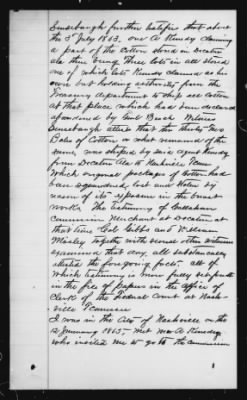 further testifies that about
the 5th July 1865, one A Kinsey claiming
a part of the Cotton stored in Decatur
Ala there being three lots in all stored
one of which lots Kinsey claimed as his
own but holding authority from the
Treasury department to ship all cotton
at that place which had been declared
abandoned by Genl Witness
attests that the thirty two
Bales of Cotton or what remained of the
same, was shipped by said agent Kinsey
from Decatur Ala to Nashville Tenn
Which original packages of Cotton had
been lost and stolen by
reason of its exposure in the
works. The testimony of
Commission Merchant at Decatur at
that time Col Gibbs and William
Mosley together with several other witnesses
examined that day, all substancialey
attested the foregoing facts. all of
Which testimony is more fully set forth
in the file of papers in the office of
Clerk of the Federal Court at Nash-
ville Tennessee
I was in the City of Nashville on the
12 January 1865, met Mr A Kinsey
who invited me to go to the Commission